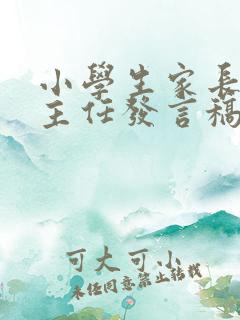 小學生家長
主任發言稿
可大可小
未经同意禁止转载